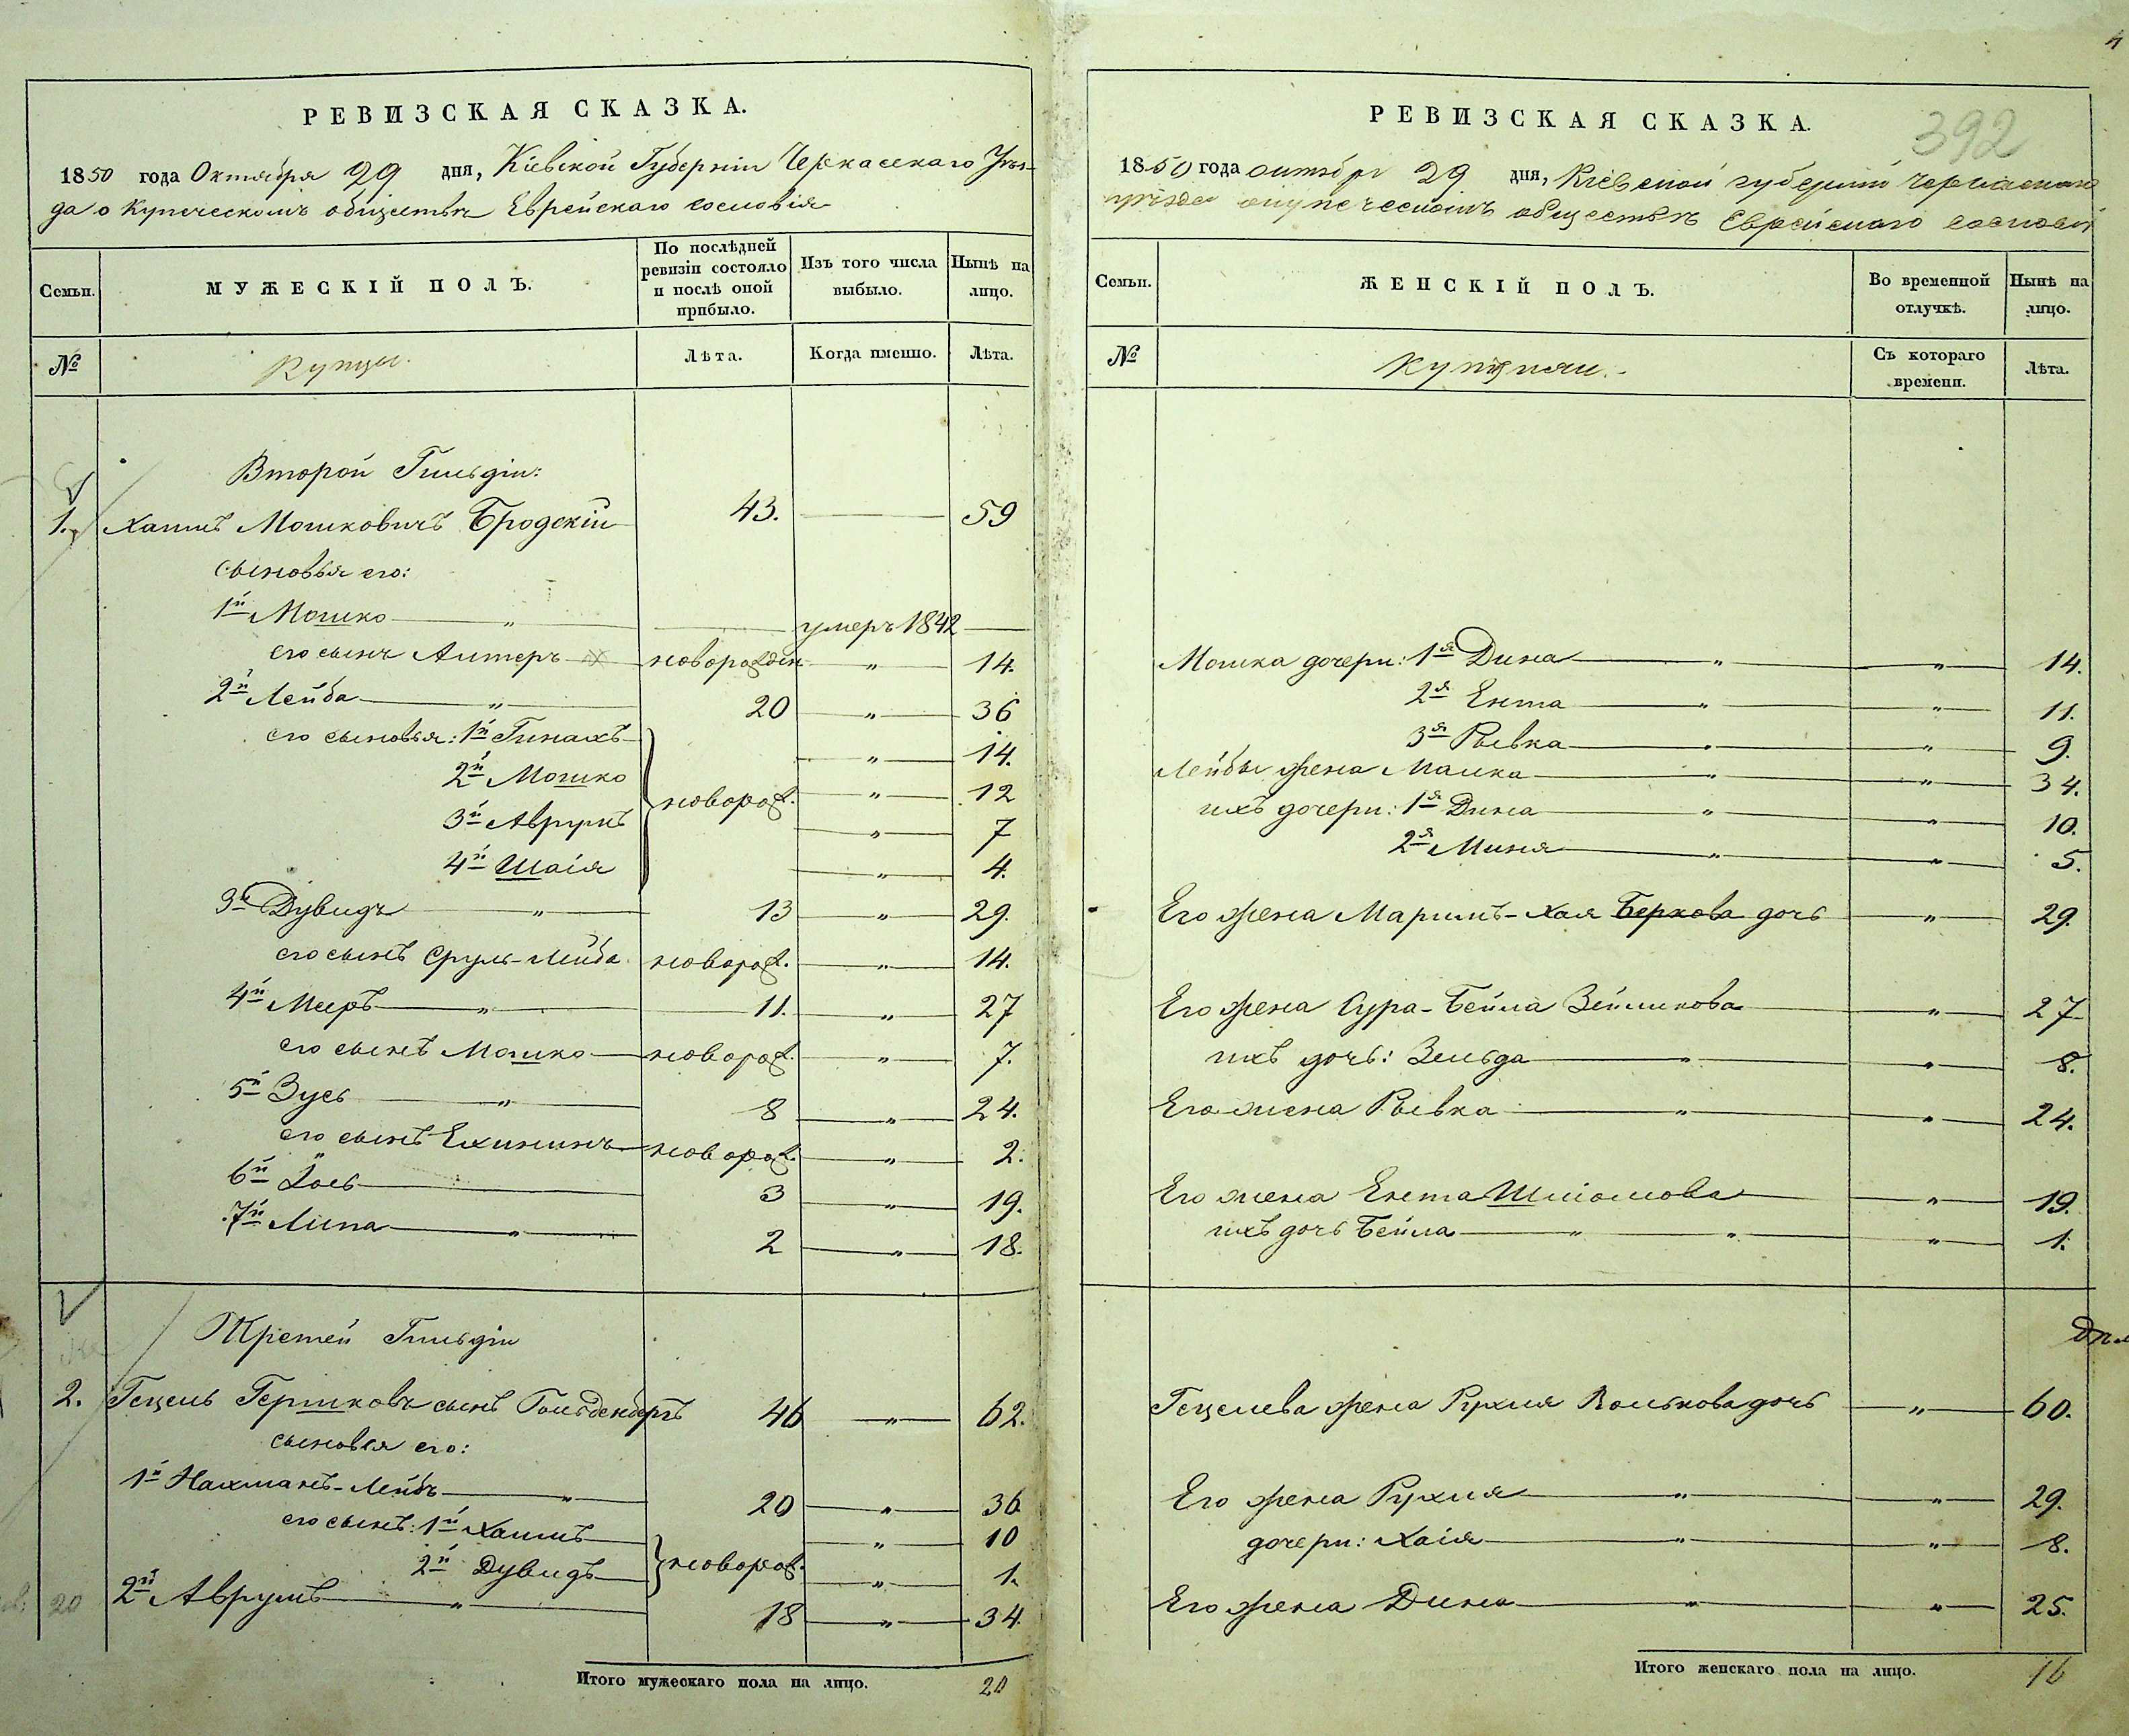 РЕВИЗСКАЯ СКАЗКА.
1850 года Октября 29 дня, Кіевской Губерніи Черкасскаго Уѣз-
да о Купеческомъ обществѣ Еврейскаго сословія
Семьи.
МУЖЕСКІЙ ПОЛЪ.
По послѣдней ревизіи состояло и послѣ оной прибыло.
Изъ того числа выбыло.
Нынѣ на лицо.
№
Купцы.
Лѣта.
Когда именно.
Лѣта.
Второй Гильдіи:
1. Хаимъ Мошковичъ Бродскій 43. 59
сыновья его:
1й Мошко " умеръ 1842
его сынъ новорожден " 14.
2й Лейба " 20 " 36
его сыновья: 1й Пинахъ " 14.
2й Мошко новорож. " 12
3й Аврумъ " 7
4й Шаія " 4.
3й Дувидъ " 13 " 29.
его сынъ Сруль-Лейба новорож. " 14.
4й Мееръ " 11. " 27
его сынъ Мошко новорож. " 7.
5й Зусь " 8 " 24.
его сынъ новорож. " 2.
6й Іось 3 " 19.
7й Липа " 2 " 18.
Третей Гильдіи
2. Гецель Гершковъ сынъ Гольденбергъ 46 " 62.
сыновья его:
1й Нахманъ-Лейбъ " 20 " 36
его сынъ: 1й Хаимъ " 10
2й Дувидъ новорож. " 1.
20 2й Аврумъ " 18 " 34.
Итого мужескаго пола на лицо. 20
4
392
РЕВИЗСКАЯ СКАЗКА.
1850 года октября 29 дня, Кіевской губерніи Черкаскаго
уѣзда о купеческомъ обществѣ Еврейскаго сословія
Семьи.
ЖЕНСКІЙ ПОЛЪ.
Во временной отлучкѣ.
Нынѣ на лицо.
№
Съ котораго времени.
Лѣта.
Мошка дочери: 1я Дина " " 14.
2я Ента " " 11.
3я Рывка " " 9.
Лейбы жена Малка " " 34.
ихъ дочери: 1я Дина " " 10.
2я Миня " " 5.
Его жена Маримъ-Хая Беркова дочь " 29.
Его жена Сура-Бейла Зейликова " 27
ихъ дочь: Зельда " " 8.
Его жена Рывка " " 24.
Его жена Ента Шліомова " 19.
ихъ дочь Бейла " " " 1.
Гецелева жена Рухля Волькова дочь " 60.
Его жена Рухля " " 29.
дочери: Хаія " " 8.
Его жена Дина " " 25.
Итого женскаго пола на лицо. 16